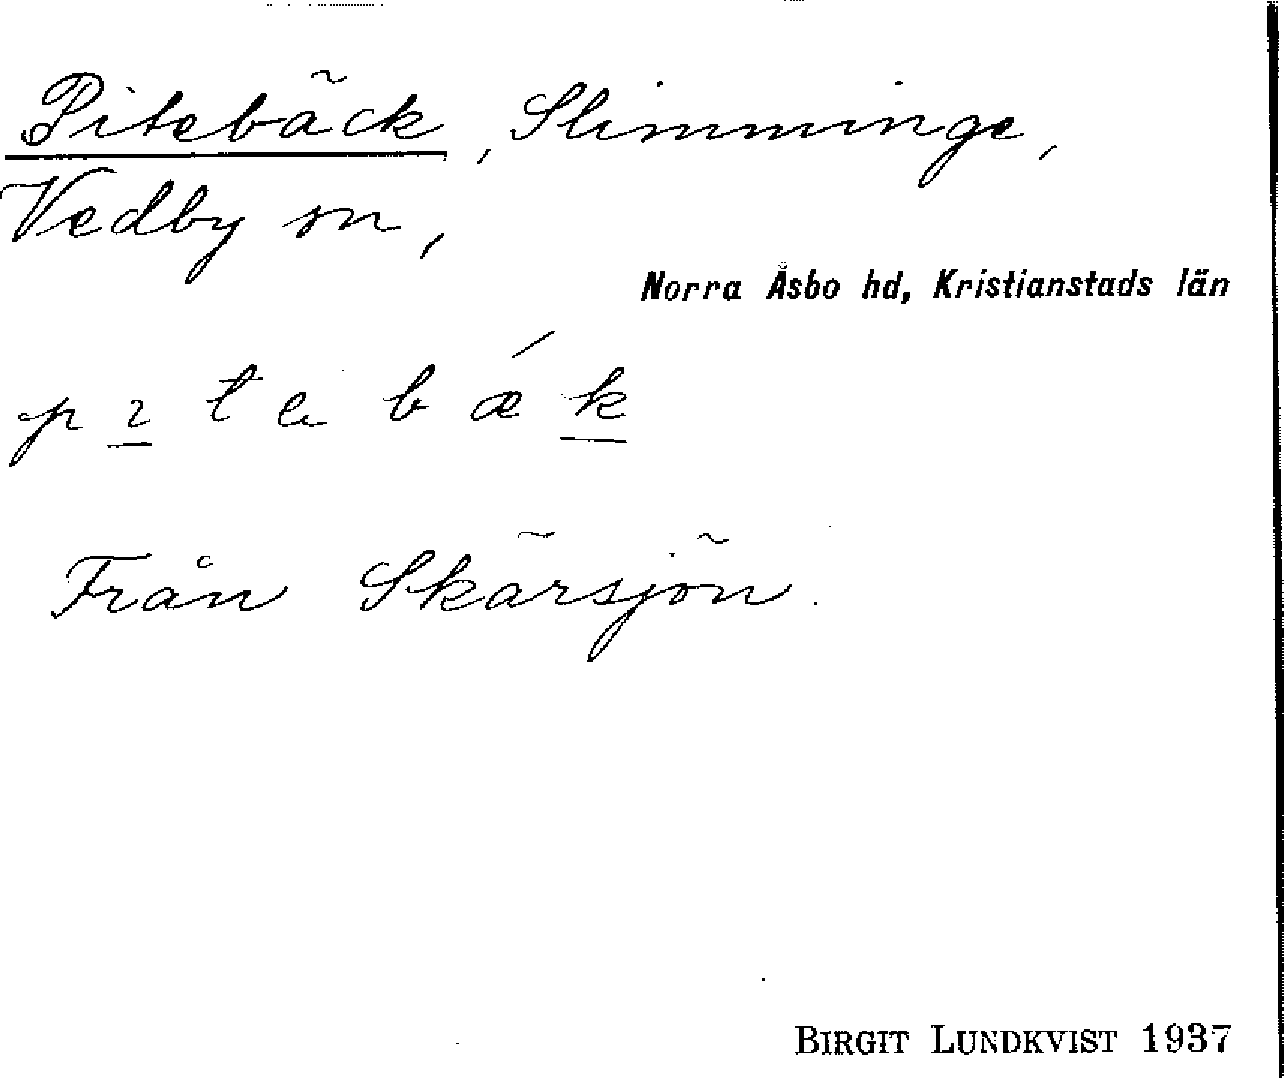 Pitebäck, Slimminge,
Vedby sn,
Norra Åsbo hd, Kristianstads län
p ɿ t ə b ǽ k
Från Skärsjön.
BIRGIT LUNDKVIST 1937